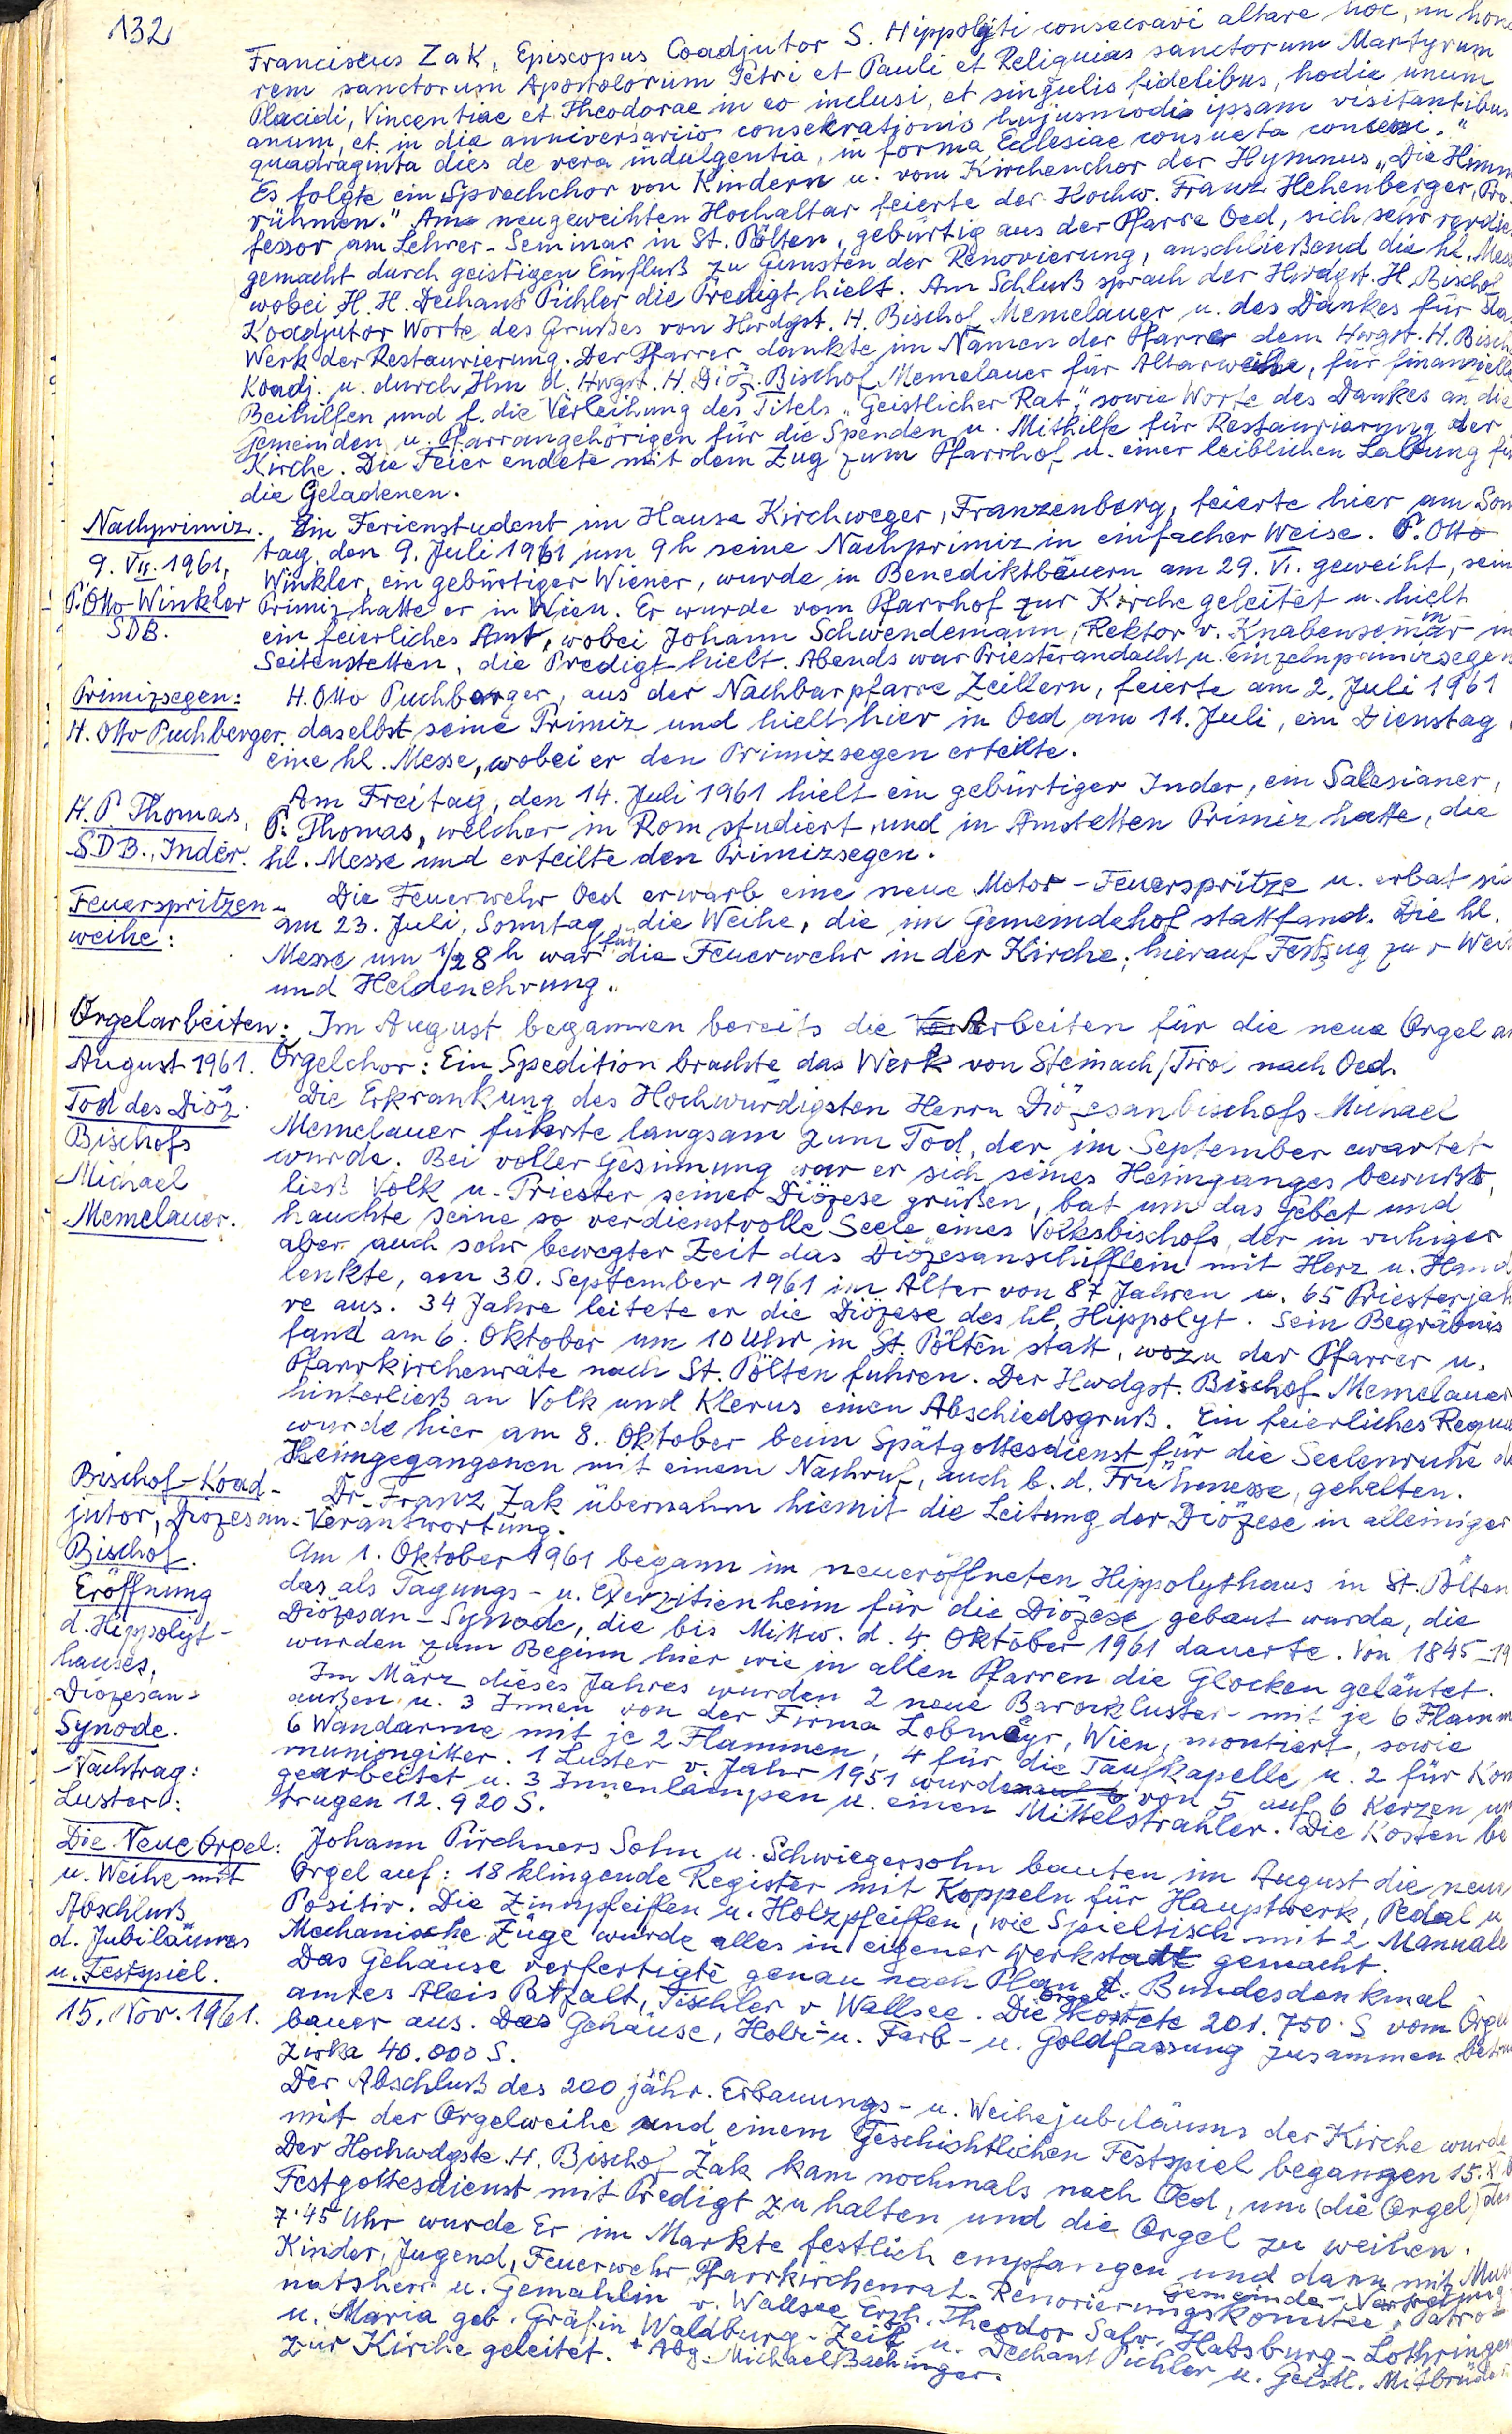 132
Franciscus Zak, Episcopus Coadjutor S. Hippolyti consecravi altare hoc, in hono
rem sanctorum Apostolorum Petri et Pauli et Reliquias sanctorum Martyrum
Placidi, Vincentiae et Theodorae in eo inclusi, et singulis fidelibus, hodie unum
anum, et in die anniversariio consekrationis hujusmodi ipsam visitantibus
quadraginta dies de vera indulgentia, in forma Ecclesiae consueta concessi."
Es folgte ein Sprechchor von Kindern u. vom Kirchenchor der Hymnus „Die Himm
rühmen." Am neugeweihten Hochaltar feierte der Hochw. Franz Hehenberger, Pro-
fessor am Lehrer-Seminar in St. Pölten, gebürtig aus der Pfarre Oed, sich sehr verdien
gemacht durch geistigen Einfluß zu Gunsten der Renovierung, anschließend die hl. Mess
wobei H. H. Dechant Pichler die Predigt hielt. Am Schluß sprach der Hwdgst. H. Bischof
Koadjutor Worte des Grußes von Hwdgst. H. Bischof Memelauer u. des Dankes für da
Werk der Restaurierung. Der Pfarrer dankte im Namen der Pfarre dem Hwgst. H. Bisch
Koadj. u. durch Ihn d. Hwgst. H. Diöz. Bischof Memelauer für Altarweihe, für finanzielle
Beihilfen und f. die Verleihung des Titels „Geistlicher Rat," sowie Worte des Dankes an die
Gemeinden u. Pfarrangehörigen für die Spenden u. Mithilfe für Restaurierung der
Kirche. Die Feier endete mit dem Zug zum Pfarrhof u. einer leiblichen Labung für
die Geladenen.
Nachprimiz.
9. VII. 1961.
P. Otto Winkler
SDB.
Ein Ferienstudent im Hause Kirchweger, Franzenberg, feierte hier am Son
tag, den 9. Juli 1961 um 9 h seine Nachprimiz in einfacher Weise. P. Otto
Winkler, ein gebürtiger Wiener, wurde in Benediktbäuern am 29. VI. geweiht, sein
Primiz hatte er in Wien. Er wurde vom Pfarrhof zur Kirche geleitet u. hielt
ein feierliches Amt, wobei Johann Schwendemann, Rektor v. Knabenseminar in
Seitenstetten, die Predigt hielt. Abends war Priesterandacht u. Einzelnprimizsegen
Primizsegen:
H. Otto Puchberger
H. Otto Puchberger, aus der Nachbarpfarre Zeillern, feierte am 2. Juli 1961
daselbst seine Primiz und hielt hier in Oed am 11. Juli, ein Dienstag,
eine hl. Messe, wobei er den Primizsegen erteilte.
H. P. Thomas,
SDB., Inder.
Am Freitag, den 14. Juli 1961 hielt ein gebürtiger Inder, ein Salesianer,
P. Thomas, welcher in Rom studiert und in Amstetten Primiz hatte, die
hl. Messe und erteilte den Primizsegen.
Feuerspritzen-
weihe:
Die Feuerwehr Oed erwarb eine neue Motor-Feuerspritze u. erbat si
am 23. Juli, Sonntag, die Weihe, die im Gemeindehof stattfand. Die hl.
Messe um 1/2 8 h war für die Feuerwehr in der Kirche; hierauf Festzug zur Weih
und Heldenehrung.
Orgelarbeiten:
August 1961.
Im August begannen bereits die Arbeiten für die neue Orgel am
Orgelchor: Ein Spedition brachte das Werk von Steinach/Tirol nach Oed.
Tod des Diöz.
Bischofs
Michael
Memelauer.
Die Erkrankung des Hochwürdigsten Herrn Diözesanbischofs Michael
Memelauer führte langsam zum Tod, der im September erwartet
wurde. Bei voller Gesinnung war er sich seines Heimganges bewußt,
ließ Volk u. Priester seiner Diözese grüßen, bat um das Gebet und
hauchte seine so verdienstvolle Seele eines Volksbischofs, der in ruhiger
aber auch sehr bewegter Zeit das Diözesanschifflein mit Herz u. Hand
lenkte, am 30. September 1961 im Alter von 87 Jahren u. 65 Priesterjah
re aus. 34 Jahre leitete er die Diözese des hl. Hippolyt. Sein Begräbnis
fand am 6. Oktober um 10 Uhr in St. Pölten statt, wozu der Pfarrer u.
Pfarrkirchenräte nach St. Pölten fuhren. Der Hwdgst. Bischof Memelauer
hinterließ an Volk und Klerus einen Abschiedsgruß. Ein feierliches Requi
wurde hier am 8. Oktober beim Spätgottesdienst für die Seelenruhe de
Heimgegangenen mit einem Nachruf, auch b. d. Frühmesse, gehalten.
Bischof-Koad-
jutor, Diözesan-
Bischof.
Dr. Franz Zak übernahm hiemit die Leitung der Diözese in alleiniger
Verantwortung.
Eröffnung
d. Hippolyt-
hauses,
Diözesan-
Synode.
Am 1. Oktober 1961 begann im neueröffneten Hippolythaus in St. Pölten
das als Tagungs- u. Exerzitienheim für die Diözese gebaut wurde, die
Diözesan-Synode, die bis Mittw. d. 4. Oktober 1961 dauerte. Von 1845-19
wurden zum Beginn hier wie in allen Pfarren die Glocken geläutet.
Nachtrag:
Luster:
Im März dieses Jahres wurden 2 neue Barockluster mit je 6 Flamm
außen u. 3 Innen von der Firma Lobmeyr, Wien, montiert, sowie
6 Wandarme mit je 2 Flammen, 4 für die Taufkapelle u. 2 für Kom
muniongitter. 1 Luster v. Jahr 1951 wurde von 5 auf 6 Kerzen um
gearbeitet u. 3 Innenlampen u. einen Mittelstrahler. Die Kosten be
trugen 12.920 S.
Die Neue Orgel:
u. Weihe mit
Abschluß
d. Jubiläums
u. Festspiel.
15. Nov. 1961.
Johann Pirchners Sohn u. Schwiegersohn bauten im August die neue
Orgel auf: 18 klingende Register mit Koppeln für Hauptwerk, Pedal u
Positiv. Die Zinnpfeiffen u. Holzpfeiffen, wie Spieltisch mit 2 Manuale
Mechanische Züge wurde alles in eigener Werkstadt gemacht.
Das Gehäuse verfertigte genau nach Plan d. Bundesdenkmal
amtes Alois Patzalt, Tischler v Wallsee. Die Orgel kostete 201.750 S vom Orgel
bauer aus. Das Gehäuse, Holz- u. Farb- u. Goldfassung zusammen betru
zirka 40.000 S.
Der Abschluß des 200 jähr. Erbauungs- u. Weihejubiläums der Kirche wurde
mit der Orgelweihe und einem Geschichtlichen Festspiel begangen 15. X
Der Hochwdgste. H. Bischof Žak kam nochmals nach Oed, um (die Orgel) den
Festgottesdienst mit Predigt zu halten und die Orgel zu weihen.
7.45 Uhr wurde Er im Markte festlich empfangen und dann mit Mus
Kinder, Jugend, Feuerwehr, Pfarrkirchenrat, Renovierungskomitee, Gemeinde-Vertretung, Patro-
natsherr u. Gemahlin v. Wallsee Erzh. Theodor Salv. Habsburg-Lothringen
u. Maria geb. Gräfin Waldburg-Zeil u. Dechant Pichler u. Geistl. Mitbrüder
zur Kirche geleitet. + Abg. Michael Bachinger.